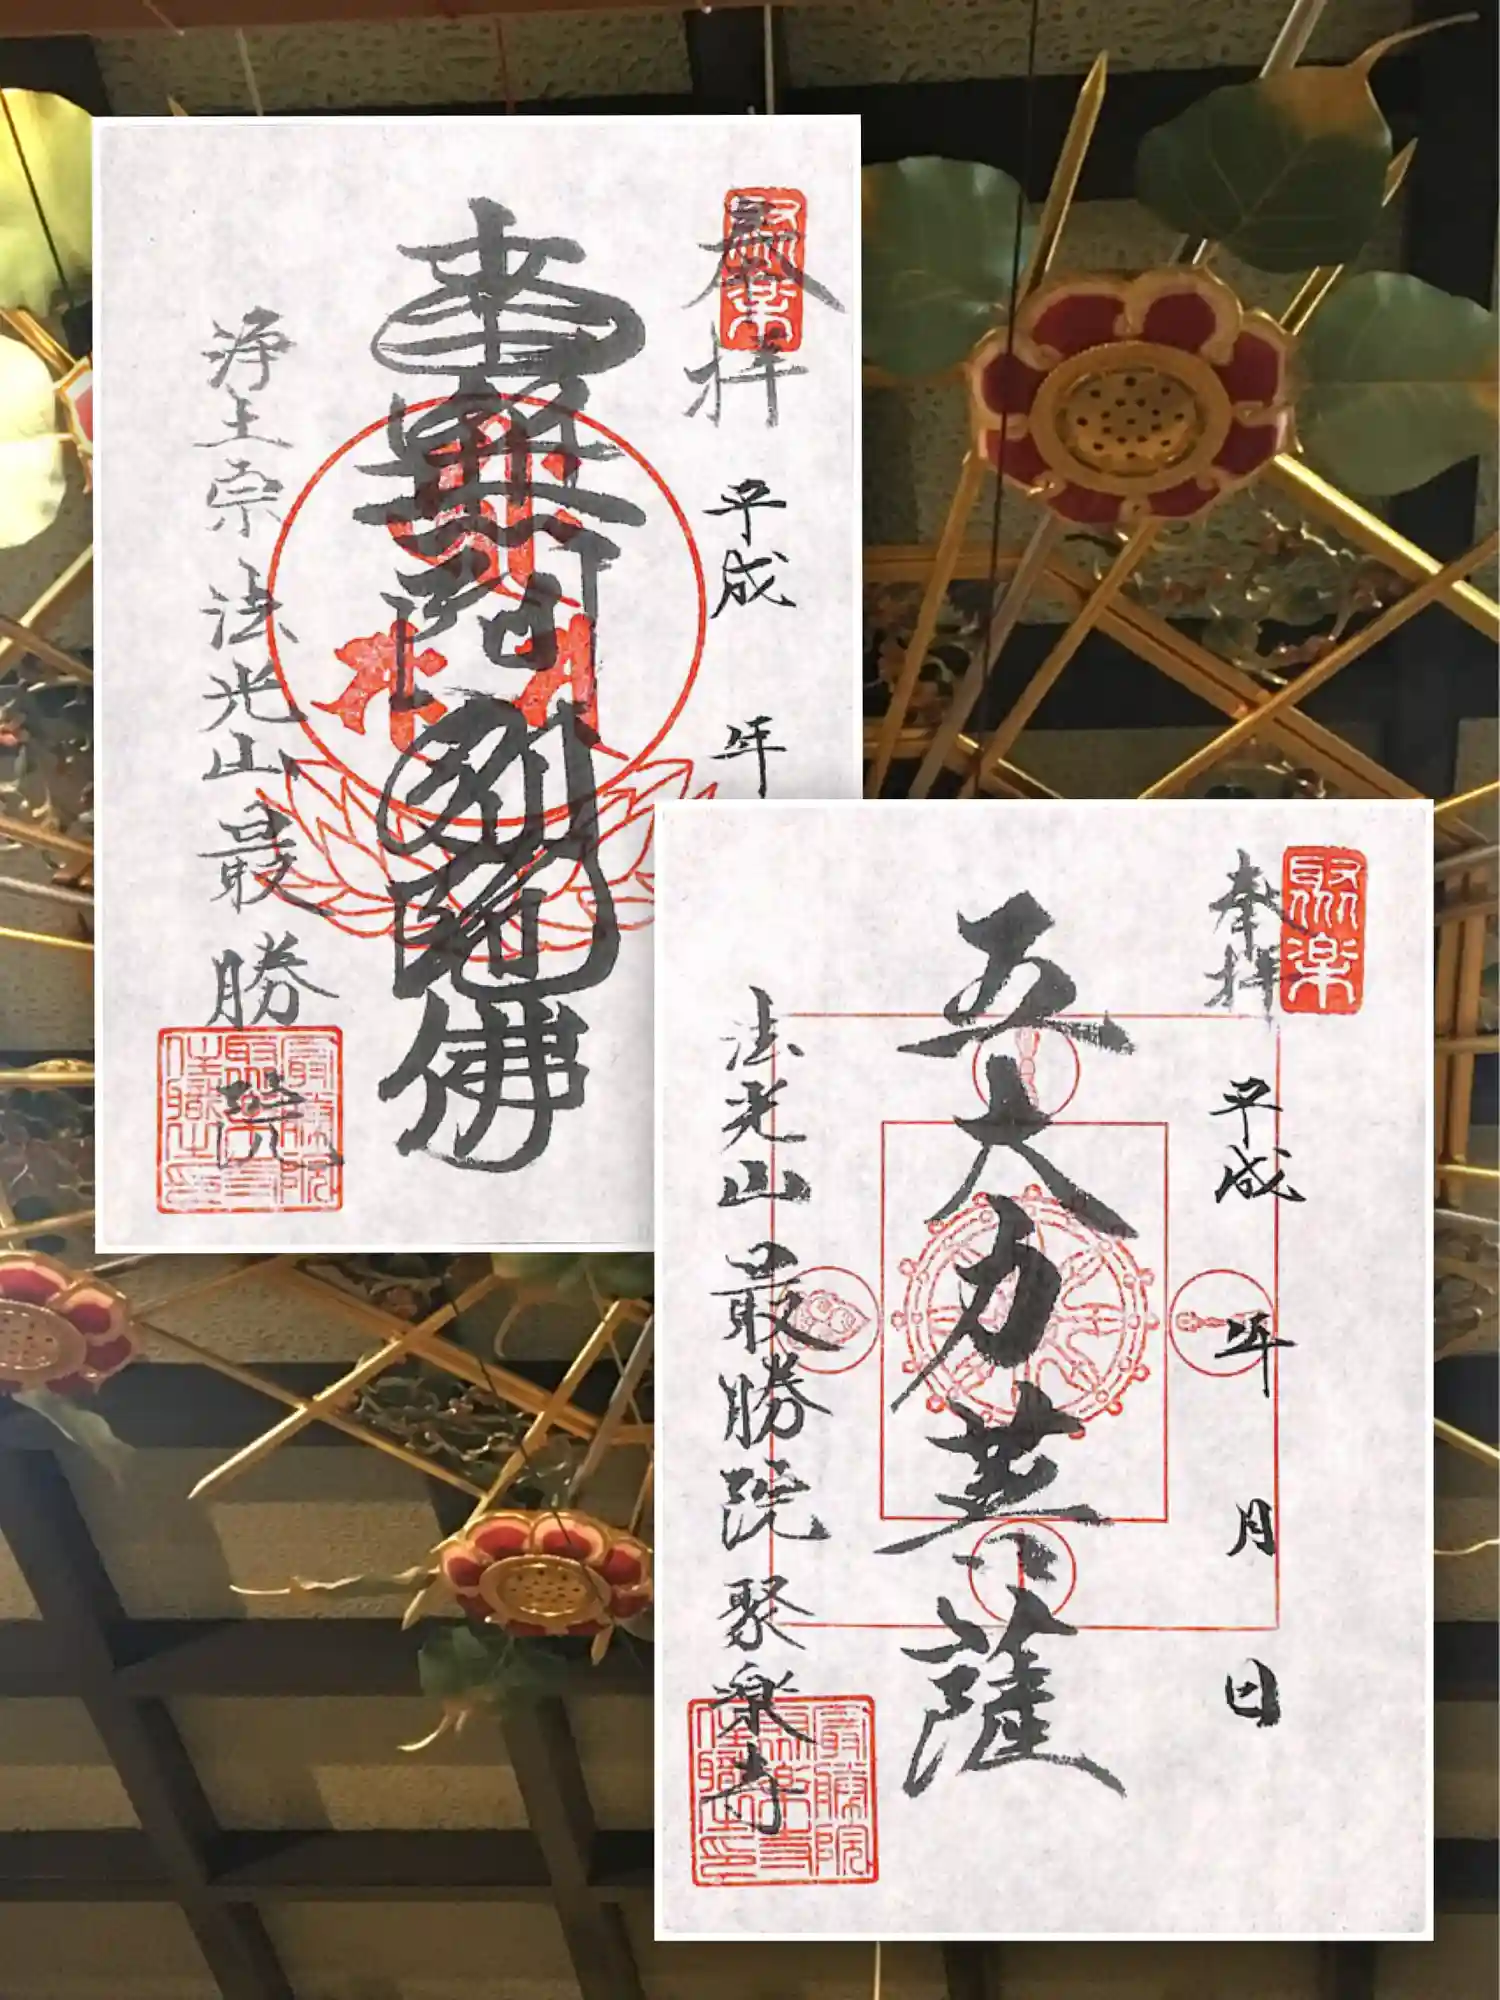 聚楽
奉拝 平成 年
南無阿弥陀佛
浄土宗 法光山 最勝院
最勝院
聚楽寺
住職之印
聚楽
奉拝 平成 年 月 日
五大力菩薩
法光山 最勝院 聚楽寺
最勝院
聚楽寺
住職之印